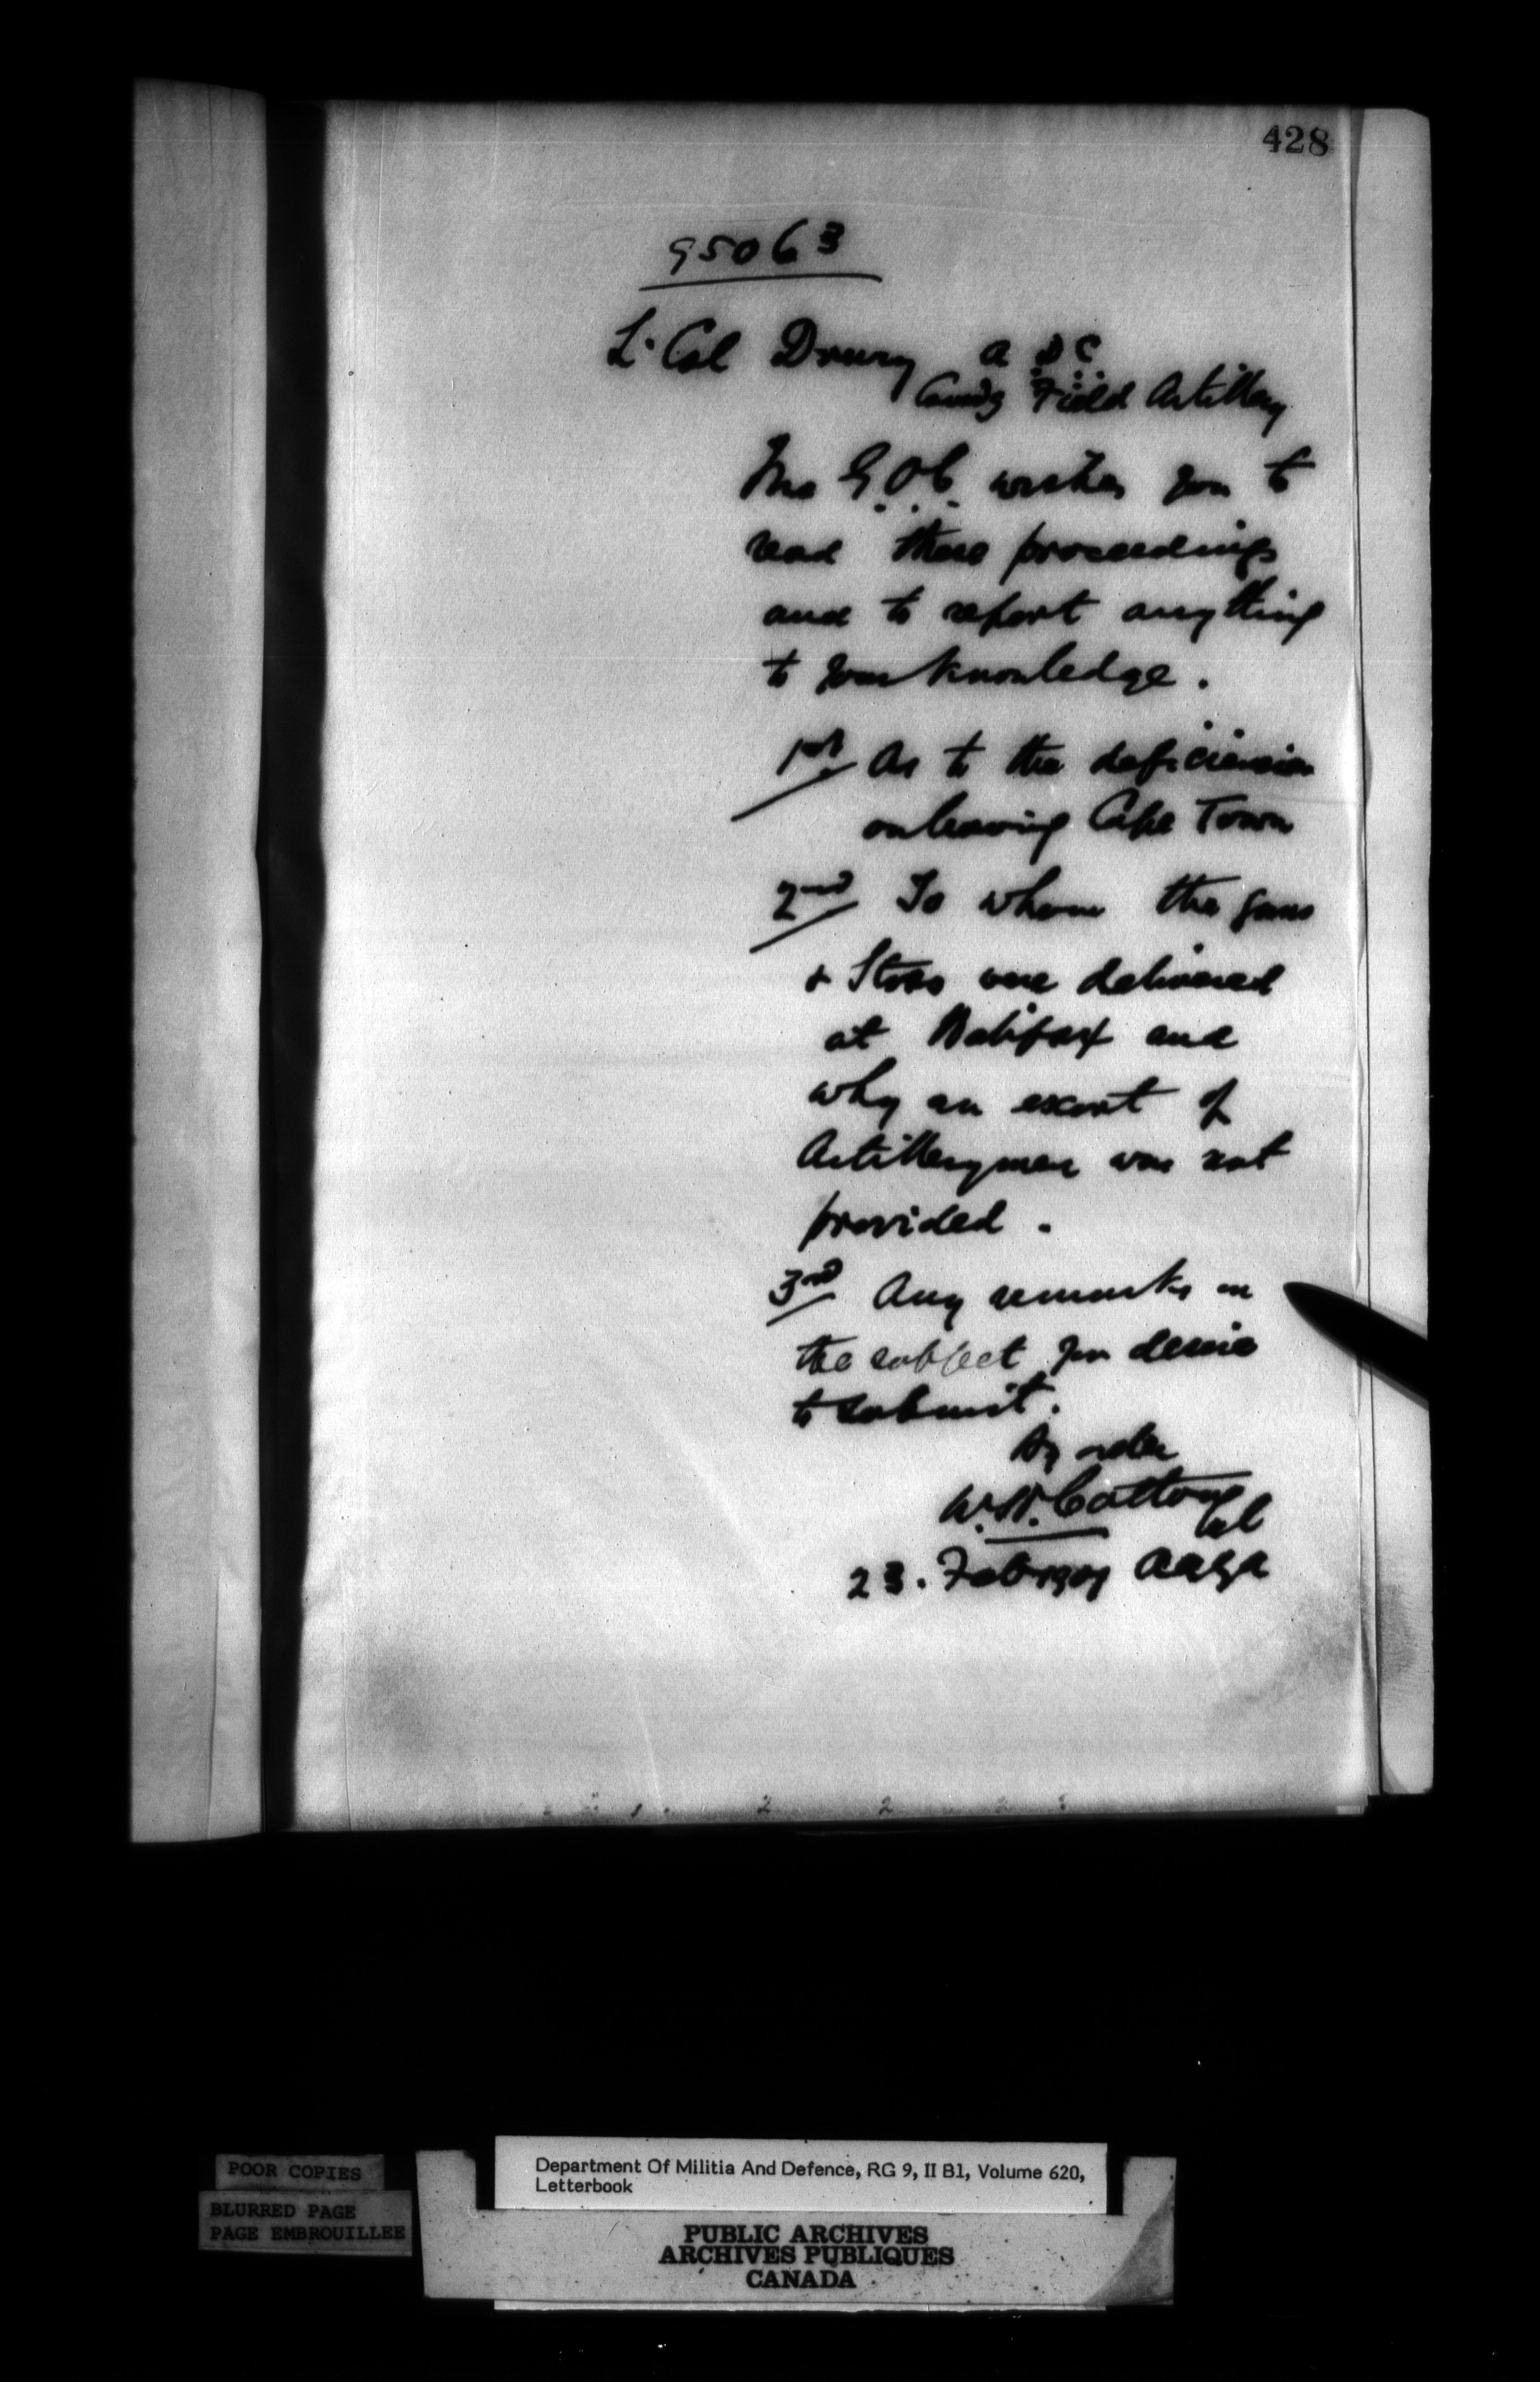 428
95063
Lt Col Drury A.D.C.
Comdg Field Artillery
The G.O.C. wishes you to
read these proceedings
and to report anything
to your knowledge.
1st As to the deficiencies
on leaving Cape Town
2nd To whom the guns
& Stores were delivered
at Halifax and
why an escort of
Artillerymen was not
provided.
3rd Any remarks on
the subject you desire
to submit.
By order
W.H. Cotton Col
23. Feb 1901 AAGA
POOR COPIES
BLURRED PAGE
PAGE EMBROUILLEE
Department Of Militia And Defence, RG 9, II B1, Volume 620,
Letterbook
PUBLIC ARCHIVES
ARCHIVES PUBLIQUES
CANADA